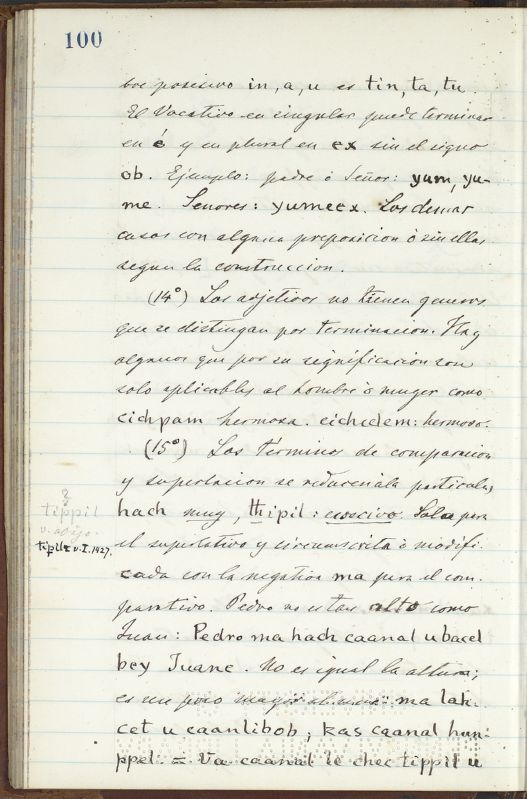 100
bos posesivo in, a, u es tin, ta, tu.
El Vocativo en singular puede terminar
en é y en plural en ex sin el signo
ob. Ejemplo: padre ó Señor: yum, yu-
me. Señores: yumeex. Los demas
casos con alguna preposicion ó sin ellas
segun la construccion.
(14°) Los adjetivos no tienen generos
que se distingan por terminacion. Hay
algunos que por su significacion son
solo aplicables al hombre ó muger como
cichpam hermosa. cichcelem: hermoso.
(15°) Los términos de comparacion
y superlacion se reducen á la particulas
hach muy, thipil: excesivo. Sola para
el superlativo y circunscrita ó modifi-
cada con la negativa ma para el com-
parativo. Pedro no es tan alto como
Juan: Pedro ma hach caanal u bacel
bey Juane. No es igual la altura;
es un poco ma lah-
cet u caanlibob; kas caanal hun-
ppel. = Va caanal le chec tippil u
?
tippil
v. abajo.
tipilte v. I. 1927.